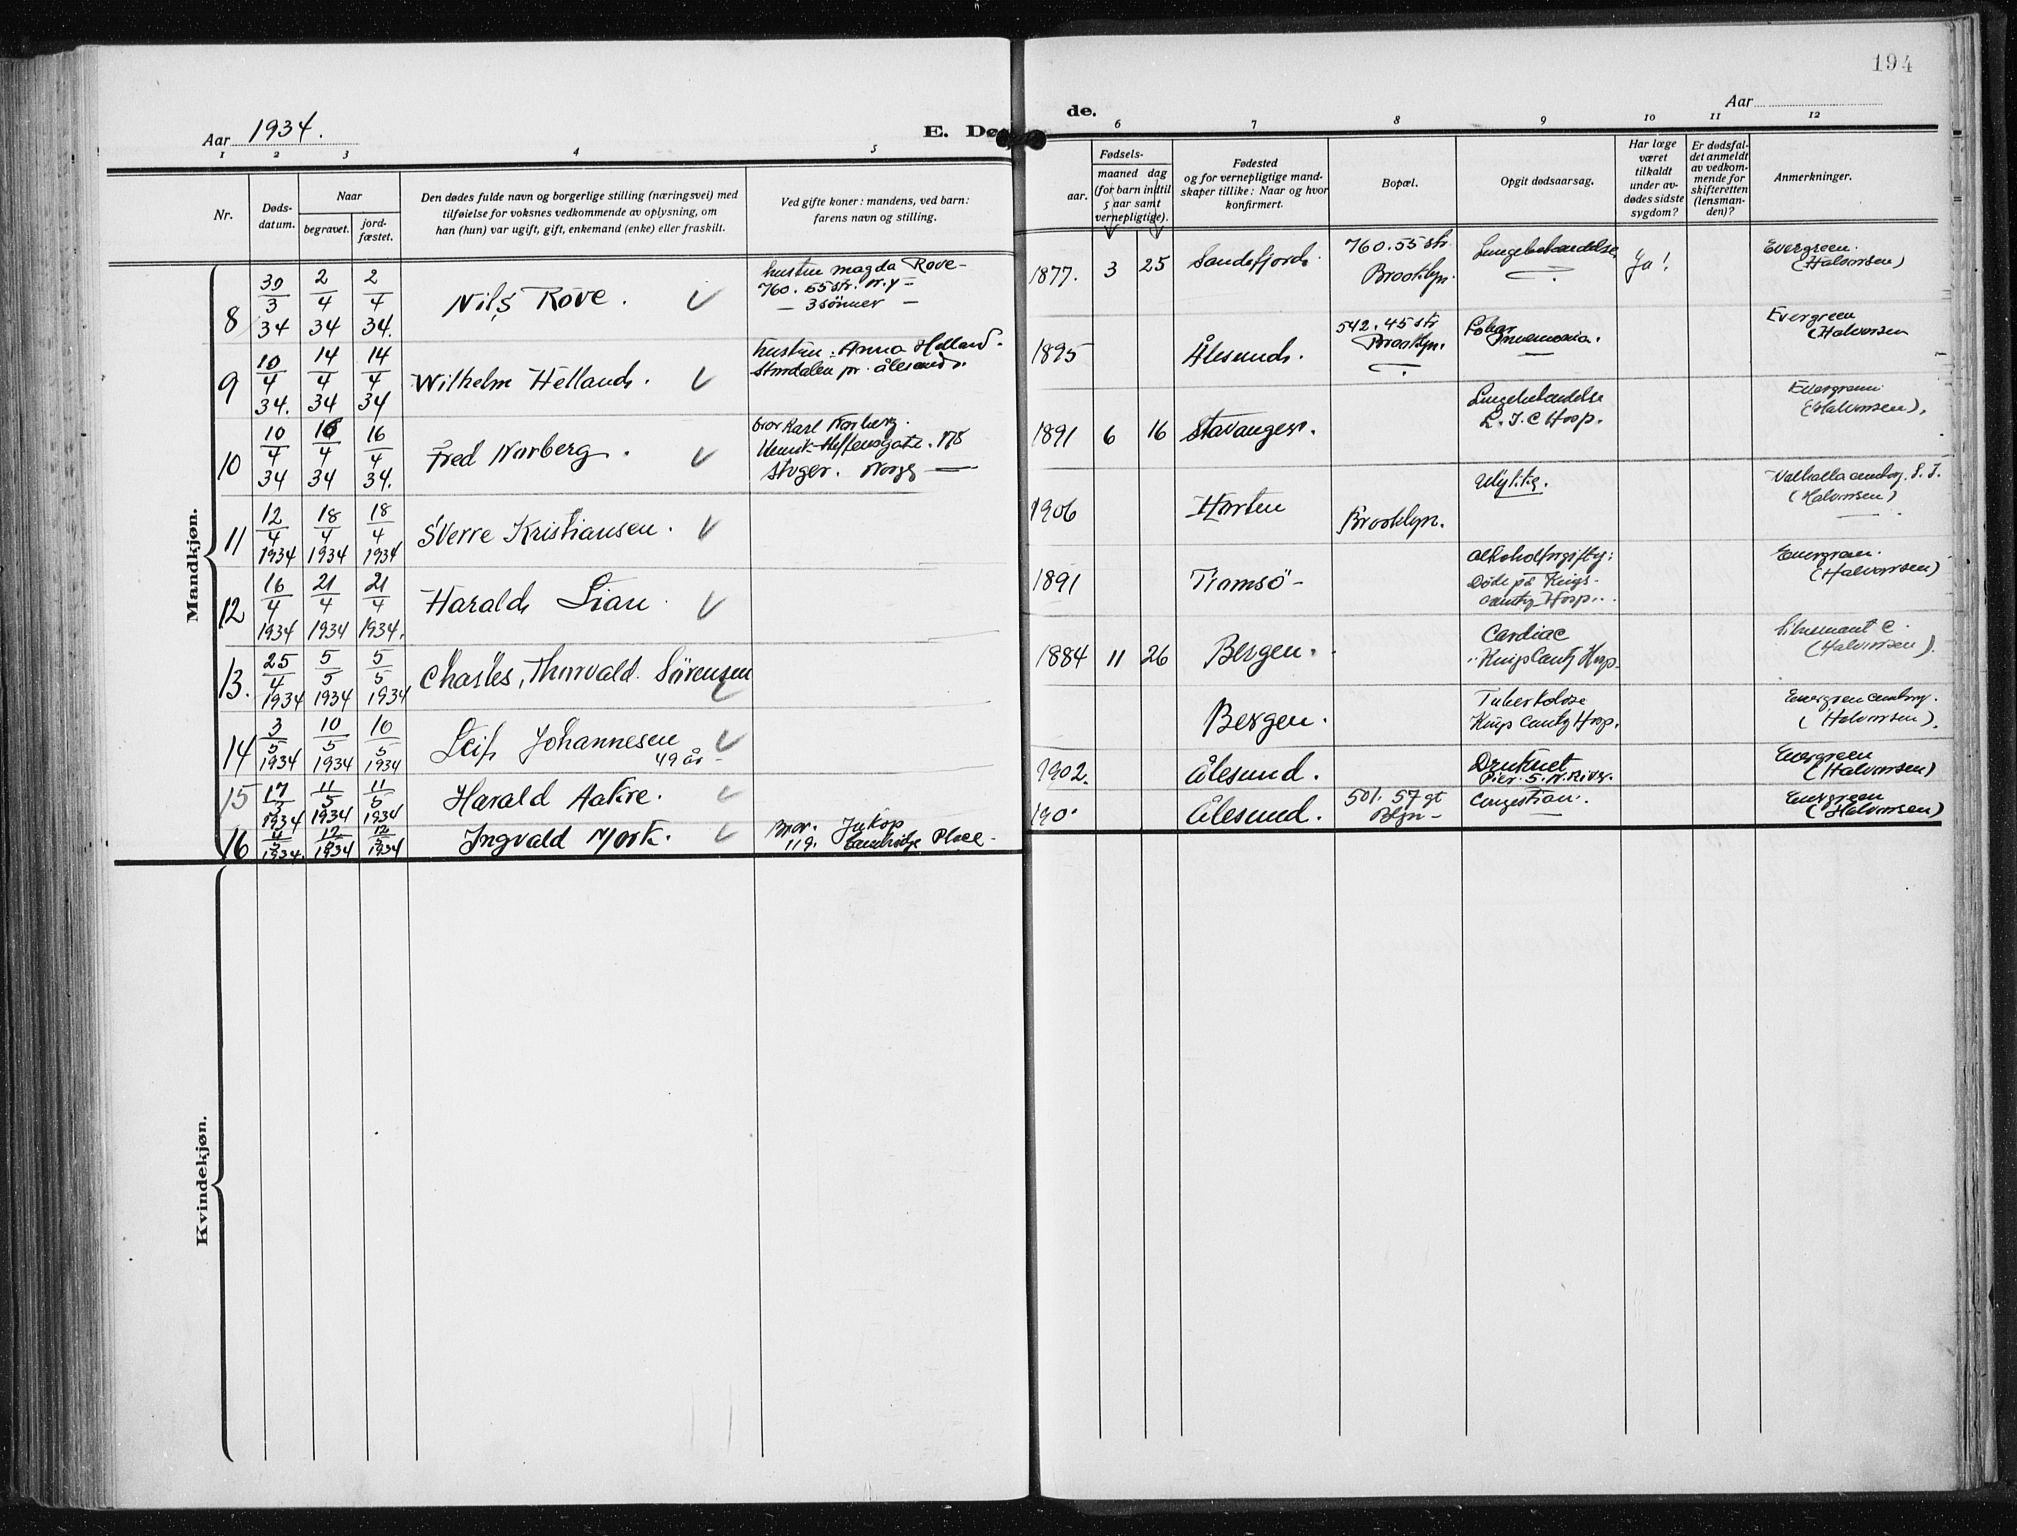 194
Aar 1934.
E. Dø
de.
Aar
1 2 3 4 5
6 7 8 9 10 11 12
Nr.
Døds-
datum.
Naar
begravet.
jord-
fæstet.
Den dødes fulde navn og borgerlige stilling (næringsvei) med
tilføielse for voksnes vedkommende av oplysning, om
han (hun) var ugift, gift, enkemand (enke) eller fraskilt.
Ved gifte koner: mandens, ved barn:
farens navn og stilling.
Fødsels-
aar.
maaned dag
(for barn indtil
5 aar samt
vernepligtige).
Fødested
og for vernepligtige mand-
skaper tillike: Naar og hvor
konfirmert.
Bopæl.
Opgit dødsaarsag.
Har læge
været
tilkaldt
under av-
dødes sidste
sygdom?
Er dødsfal-
det anmeldt
av vedkom-
mende for
skifteretten
(lensman-
den)?
Anmerkninger.
Mandkjøn.
8 30/3 34 2/4 34 2/4 34. Nils Rove.
hustru magda Rove-
760. 55 str. N.Y-
- 3 sönner -
1877. 3 25 Sandefjord.
760. 55 str
Brooklyn.
Ja!
Evergreen.
(Halvorsen)
9 10/4 34. 14/4 34 14/4 34 Wilhelm Helland.
hustru. Anna Helland.
pr. Ålesund.
1895 Ålesund.
542. 45 str
Brooklyn.
Lobar
Pneumonia.
Evergreen
(Halvorsen
10 10/4 34 16/4 34 16/4 34. Fred Norberg.
bror Karl Norberg.
Stvger. Norge
1891 6 16 Stavanger.
L. I. C Hosp.
Evergreen
(Halvorsen).
11 12/4 1934 18/4 1934 18/4 1934 Sverre Kristiansen.
1906 Horten
Brooklyn.
Ulykke.
Valhalla cemtry. S. I.
(Halvorsen)
12 16/4 1934 21/4 1934 21/4 1934. Harald Lian
1891 Tromsö-
Döde på Kings-
County Hosp.
Evergreen.
(Halvorsen)
13. 25/4 1934 5/5 1934 5/5 1934 Charles, Thorvald Sörensen
1884 11 26 Bergen.
Cardiac
Kings County Hosp.
(Halvorsen).
14 3/5 1934 10/5 1934 10/5 1934 Leif Johannesen
49 år-
Bergen.
Tuberkolose
Kings County Hosp.
Evergreen cemtry.
(Halvorsen).
15 17/3 1934 11/5 1934 11/5 1934 Harald Aakre.
1902. Ålesund.
Druknet
Pier. 5. N. River.
Evergreen
(Halvorsen)
16 1934. 12/5 1934 12/5 1934 Ingvald Mork.
Bror. Jakop
119. Cambridge Place-
190 Ålesund.
501. 57 gt
Blyn-
Congestion.
Evergreen
(Halvorsen)
Kvindekjøn.